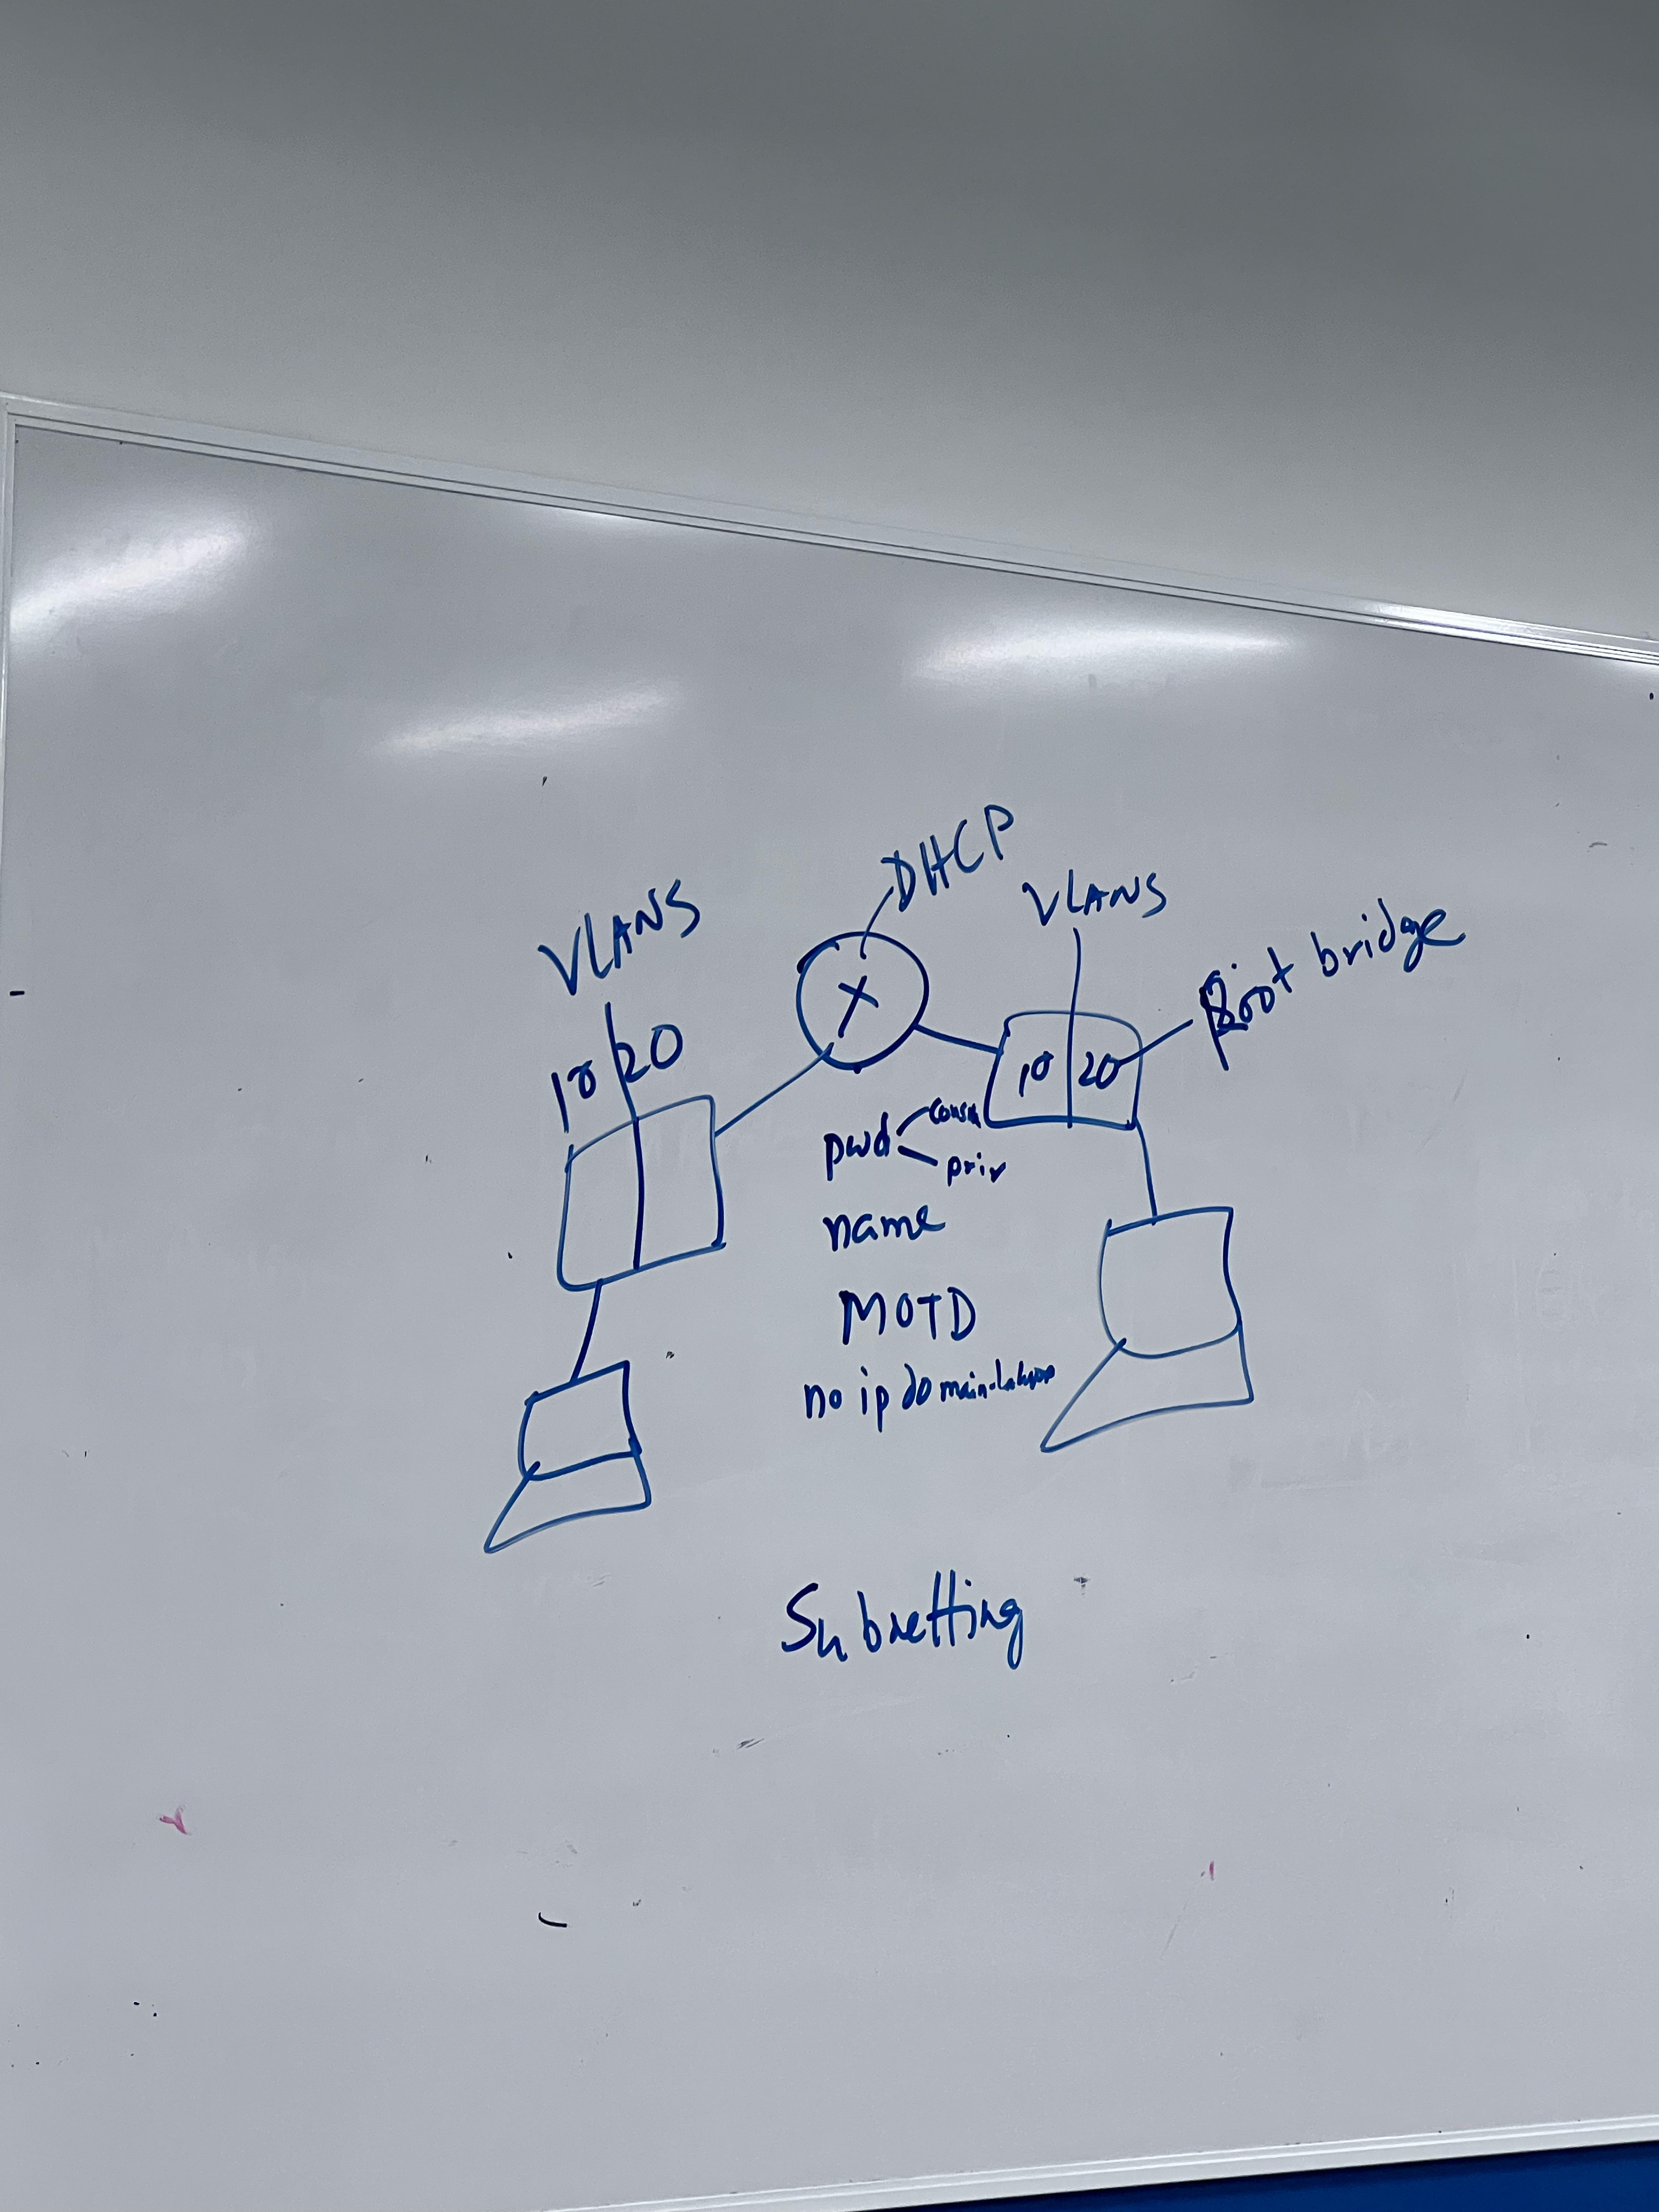 DHCP
VLANS
VLANS
Root bridge
10 20
10 20
pwd
priv
name
MOTD
no ip domain-
Subnetting